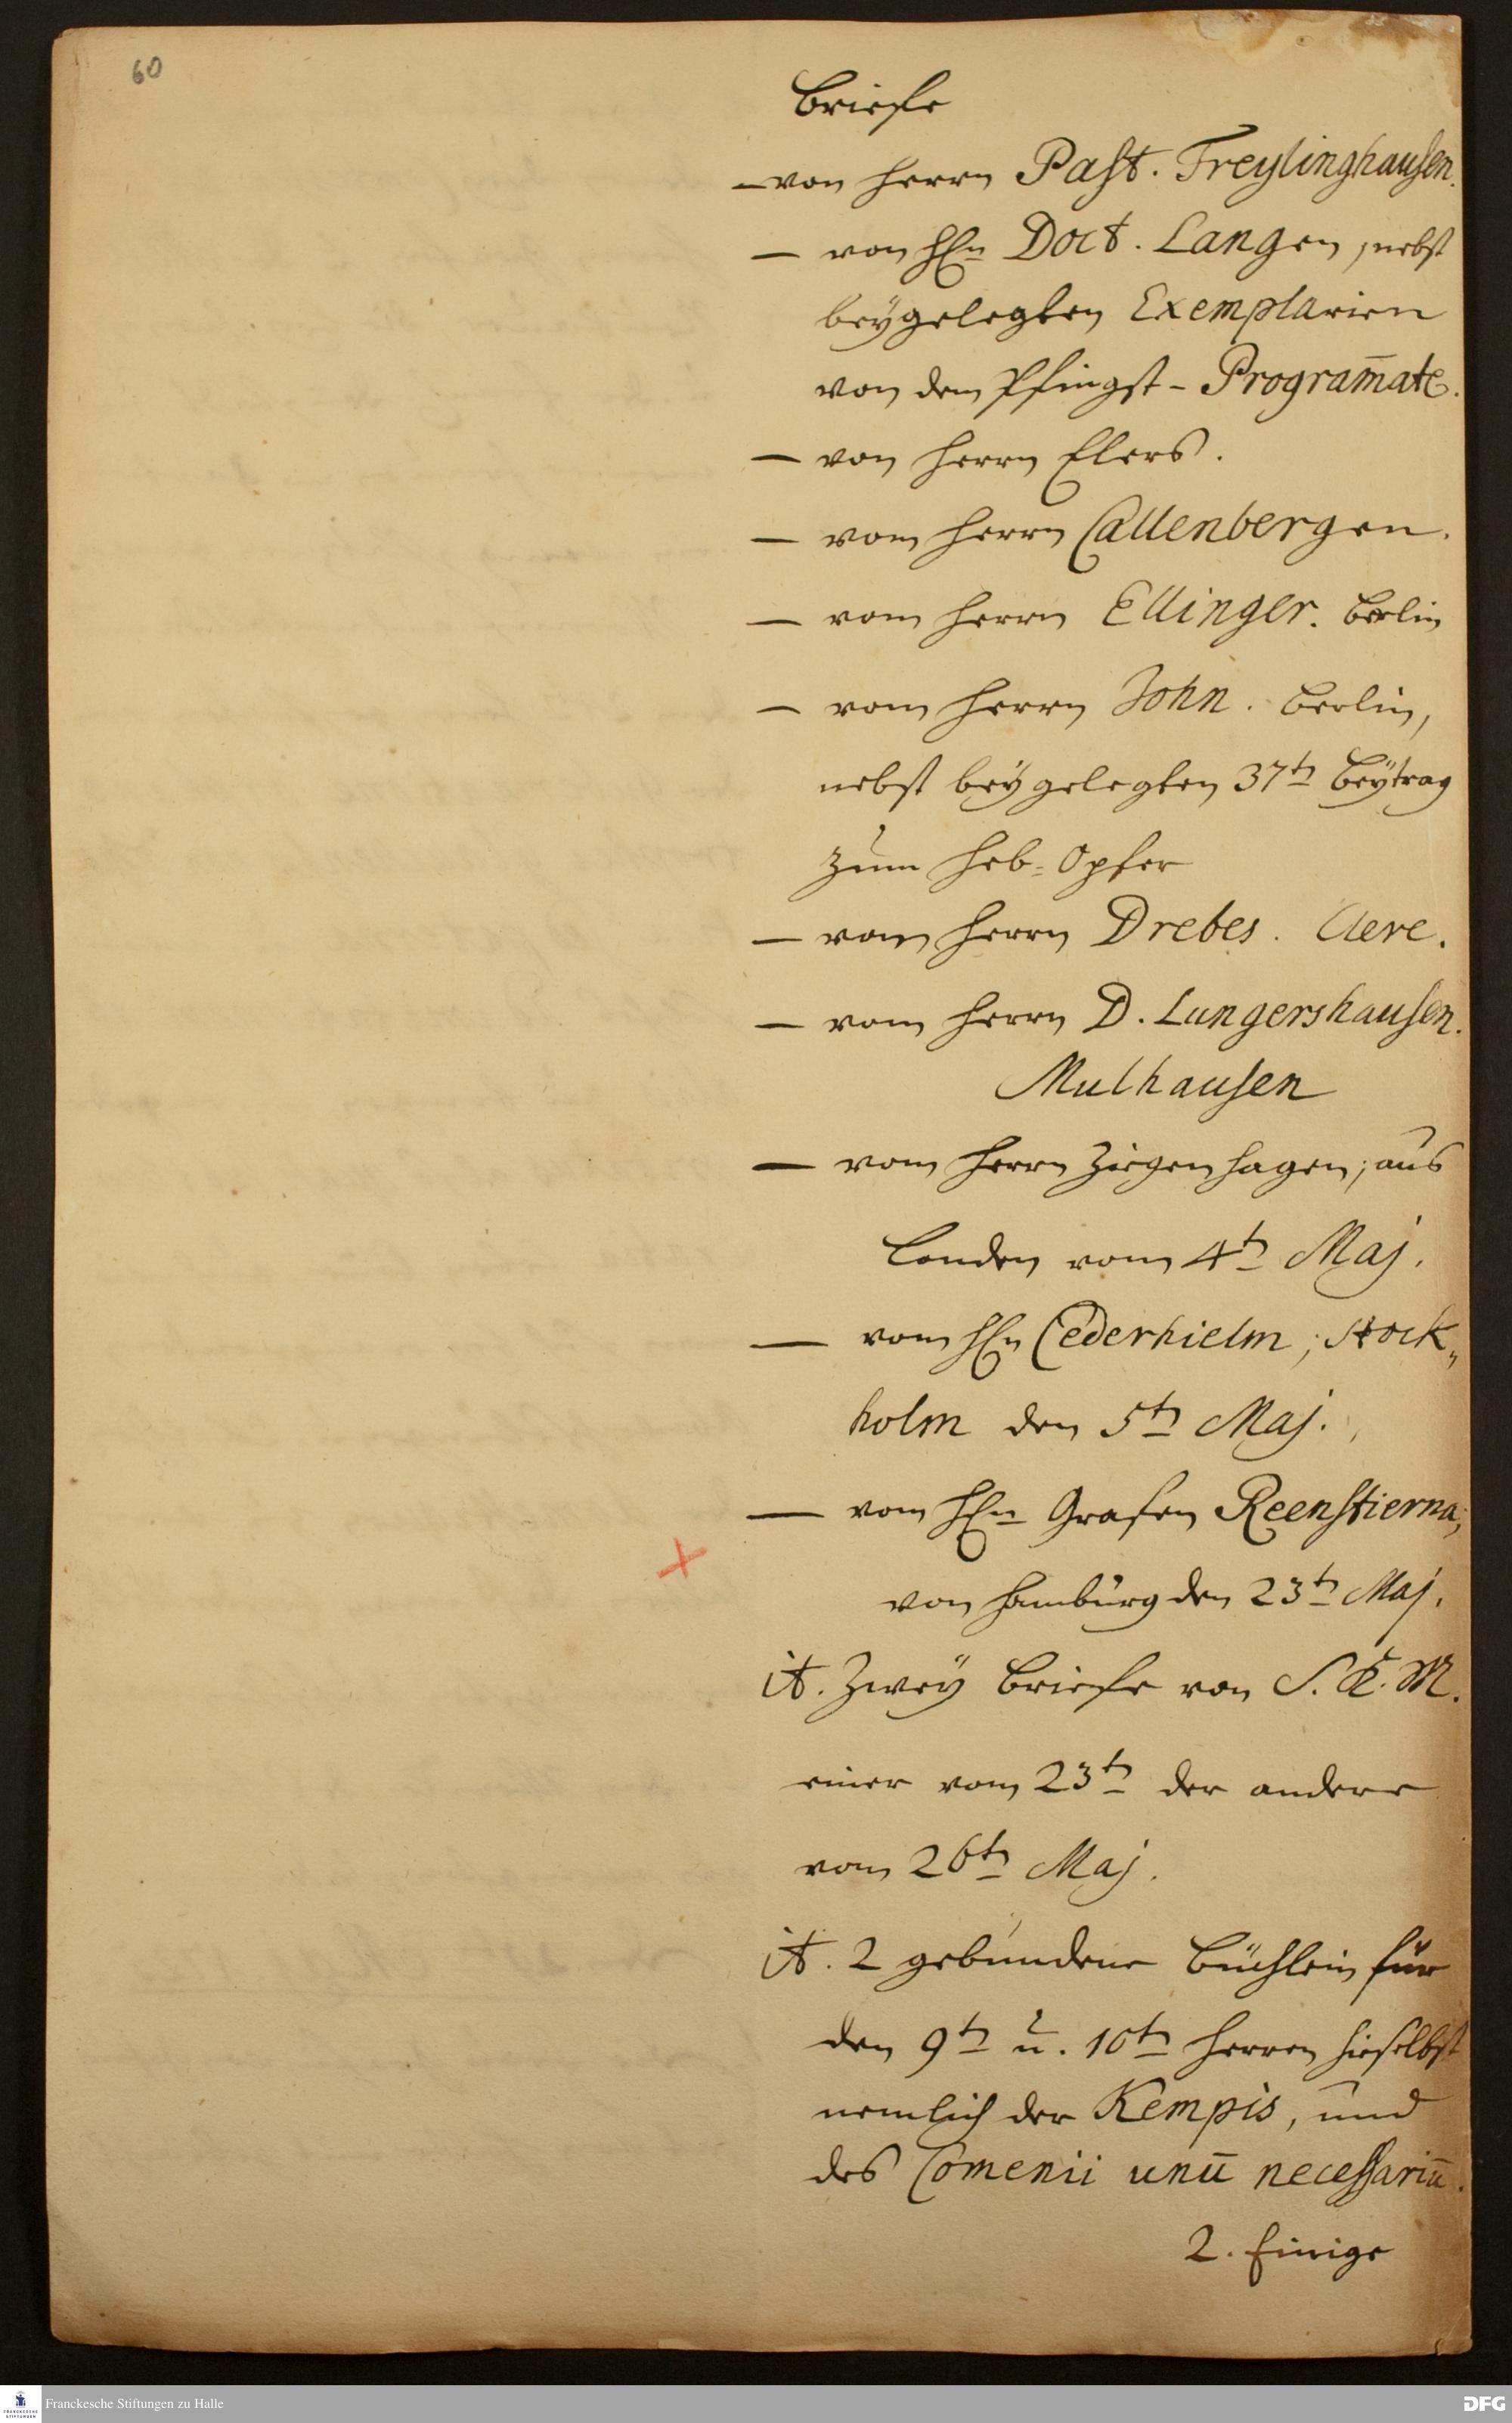 60
Briefe
— von Herrn Past. Freylinghausen.
— von HEn Doct. Langen, nebst
beygelegten Exemplarien
von dem Pfingst-Program̄ate.
— von Herrn Elers.
— vom Herrn Callenbergen.
— vom Herrn Ellinger. Berlin
— vom Herrn John. Berlin,
nebst beygelegten 37tn Beytrag
zum Heb-Opfer
— vom Herrn Drebes. Aere.
— vom Herrn D. Lungershausen.
Mulhausen
— vom Herrn Ziegenhagen, aus
Londen vom 4tn Maj.
— vom HEn Cederhielm, Stock„
holm den 5tn Maj.
— vom HEn Grafen Reenstierna,
von Hamburg den 23tn Maj.
it. Zwey Briefe von S. E. M.
einer vom 23tn der andere
vom 26tn Maj.
it. 2 gebundene Büchlein für
den 9tn u. 10tn Herren hieselbst
nemlich der Kempis, und
des Comenii unū necessariū.
2. Einige
Franckesche Stiftungen zu Halle
DFG